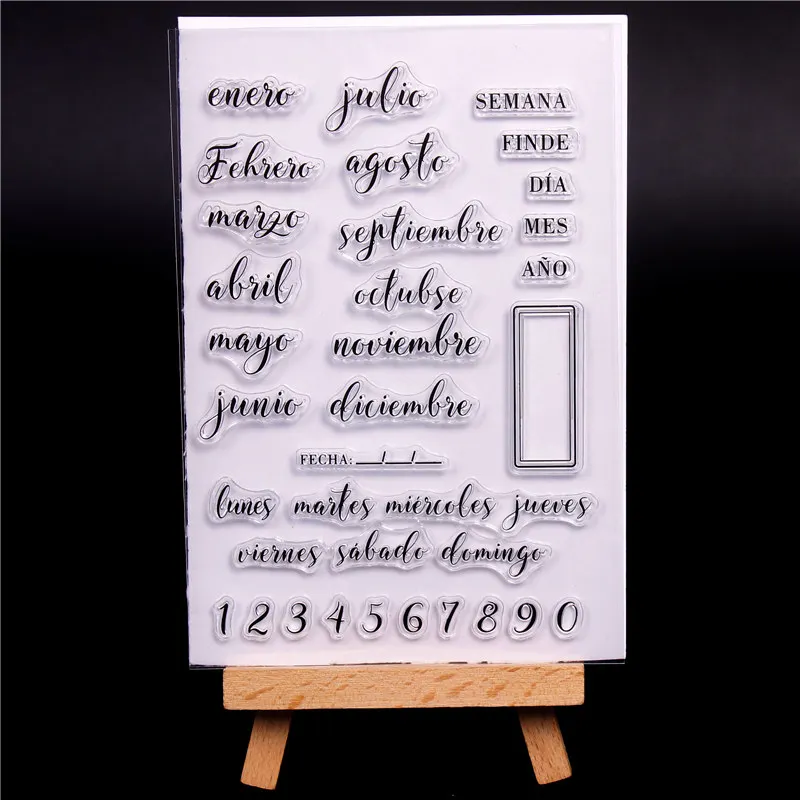 enero
Febrero
marzo
abril
mayo
junio
julio
agosto
septiembre
octubse
noviembre
diciembre
SEMANA
FINDE
DÍA
MES
AÑO
FECHA:__/__/__
lunes martes miércoles jueves
viernes sábado domingo
1 2 3 4 5 6 7 8 9 0